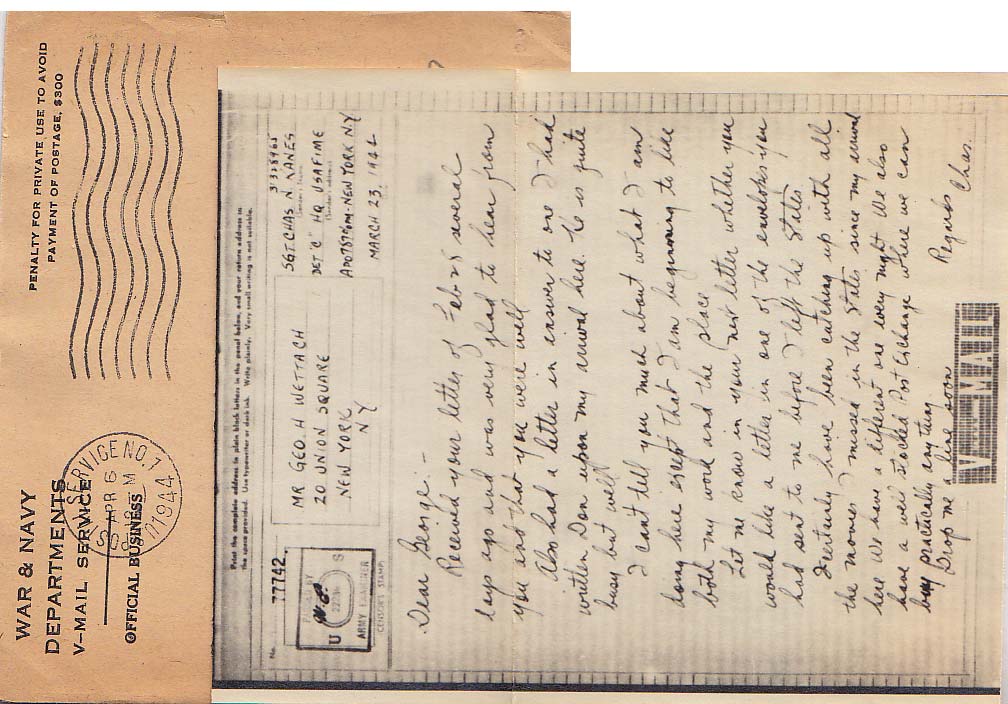 WAR & NAVY
DEPARTMENTS
V-MAIL SERVICE
OFFICIAL BUSINESS
PENALTY FOR PRIVATE USE TO AVOID
PAYMENT OF POSTAGE, $300
SERVICE NO. 1
APR 6
12 M
1944
Print the complete address in plain block letters in the panel below, and your return address in
the space provided. Use typewriter or dark ink. Write plainly. Very small writing is not suitable.
No. 77742
MR GEO. H WETTACH
20 UNION SQUARE
NEW YORK
NY
SGT. CHAS N. KANES
(Sender's name)
DET "C" HQ USAFIME
(Sender's address)
NEW YORK NY
MARCH 23, 1944
U S
ARMY EXAMINER
CENSOR'S STAMP
Dear George. -
Received your letter of Feb 28 several
days ago and was very glad to hear from
you and that you were well
Also had a letter in answer to one I had
written Don upon my arrival here. He is quite
busy but well
I can't tell you much about what I am
doing here except that I am beginning to like
both my work and the place
Let me know in your next letter whether you
would like a letter in one of the envelopes you
had sent to me before I left the States.
I certainly have been catching up with all
the movies I missed in the States since my arrival
here We have a different one every night We also
have a well stocked Post Exchange where we can
buy practically any thing
Drop me a line soon
Regards
Chas.
V-MAIL